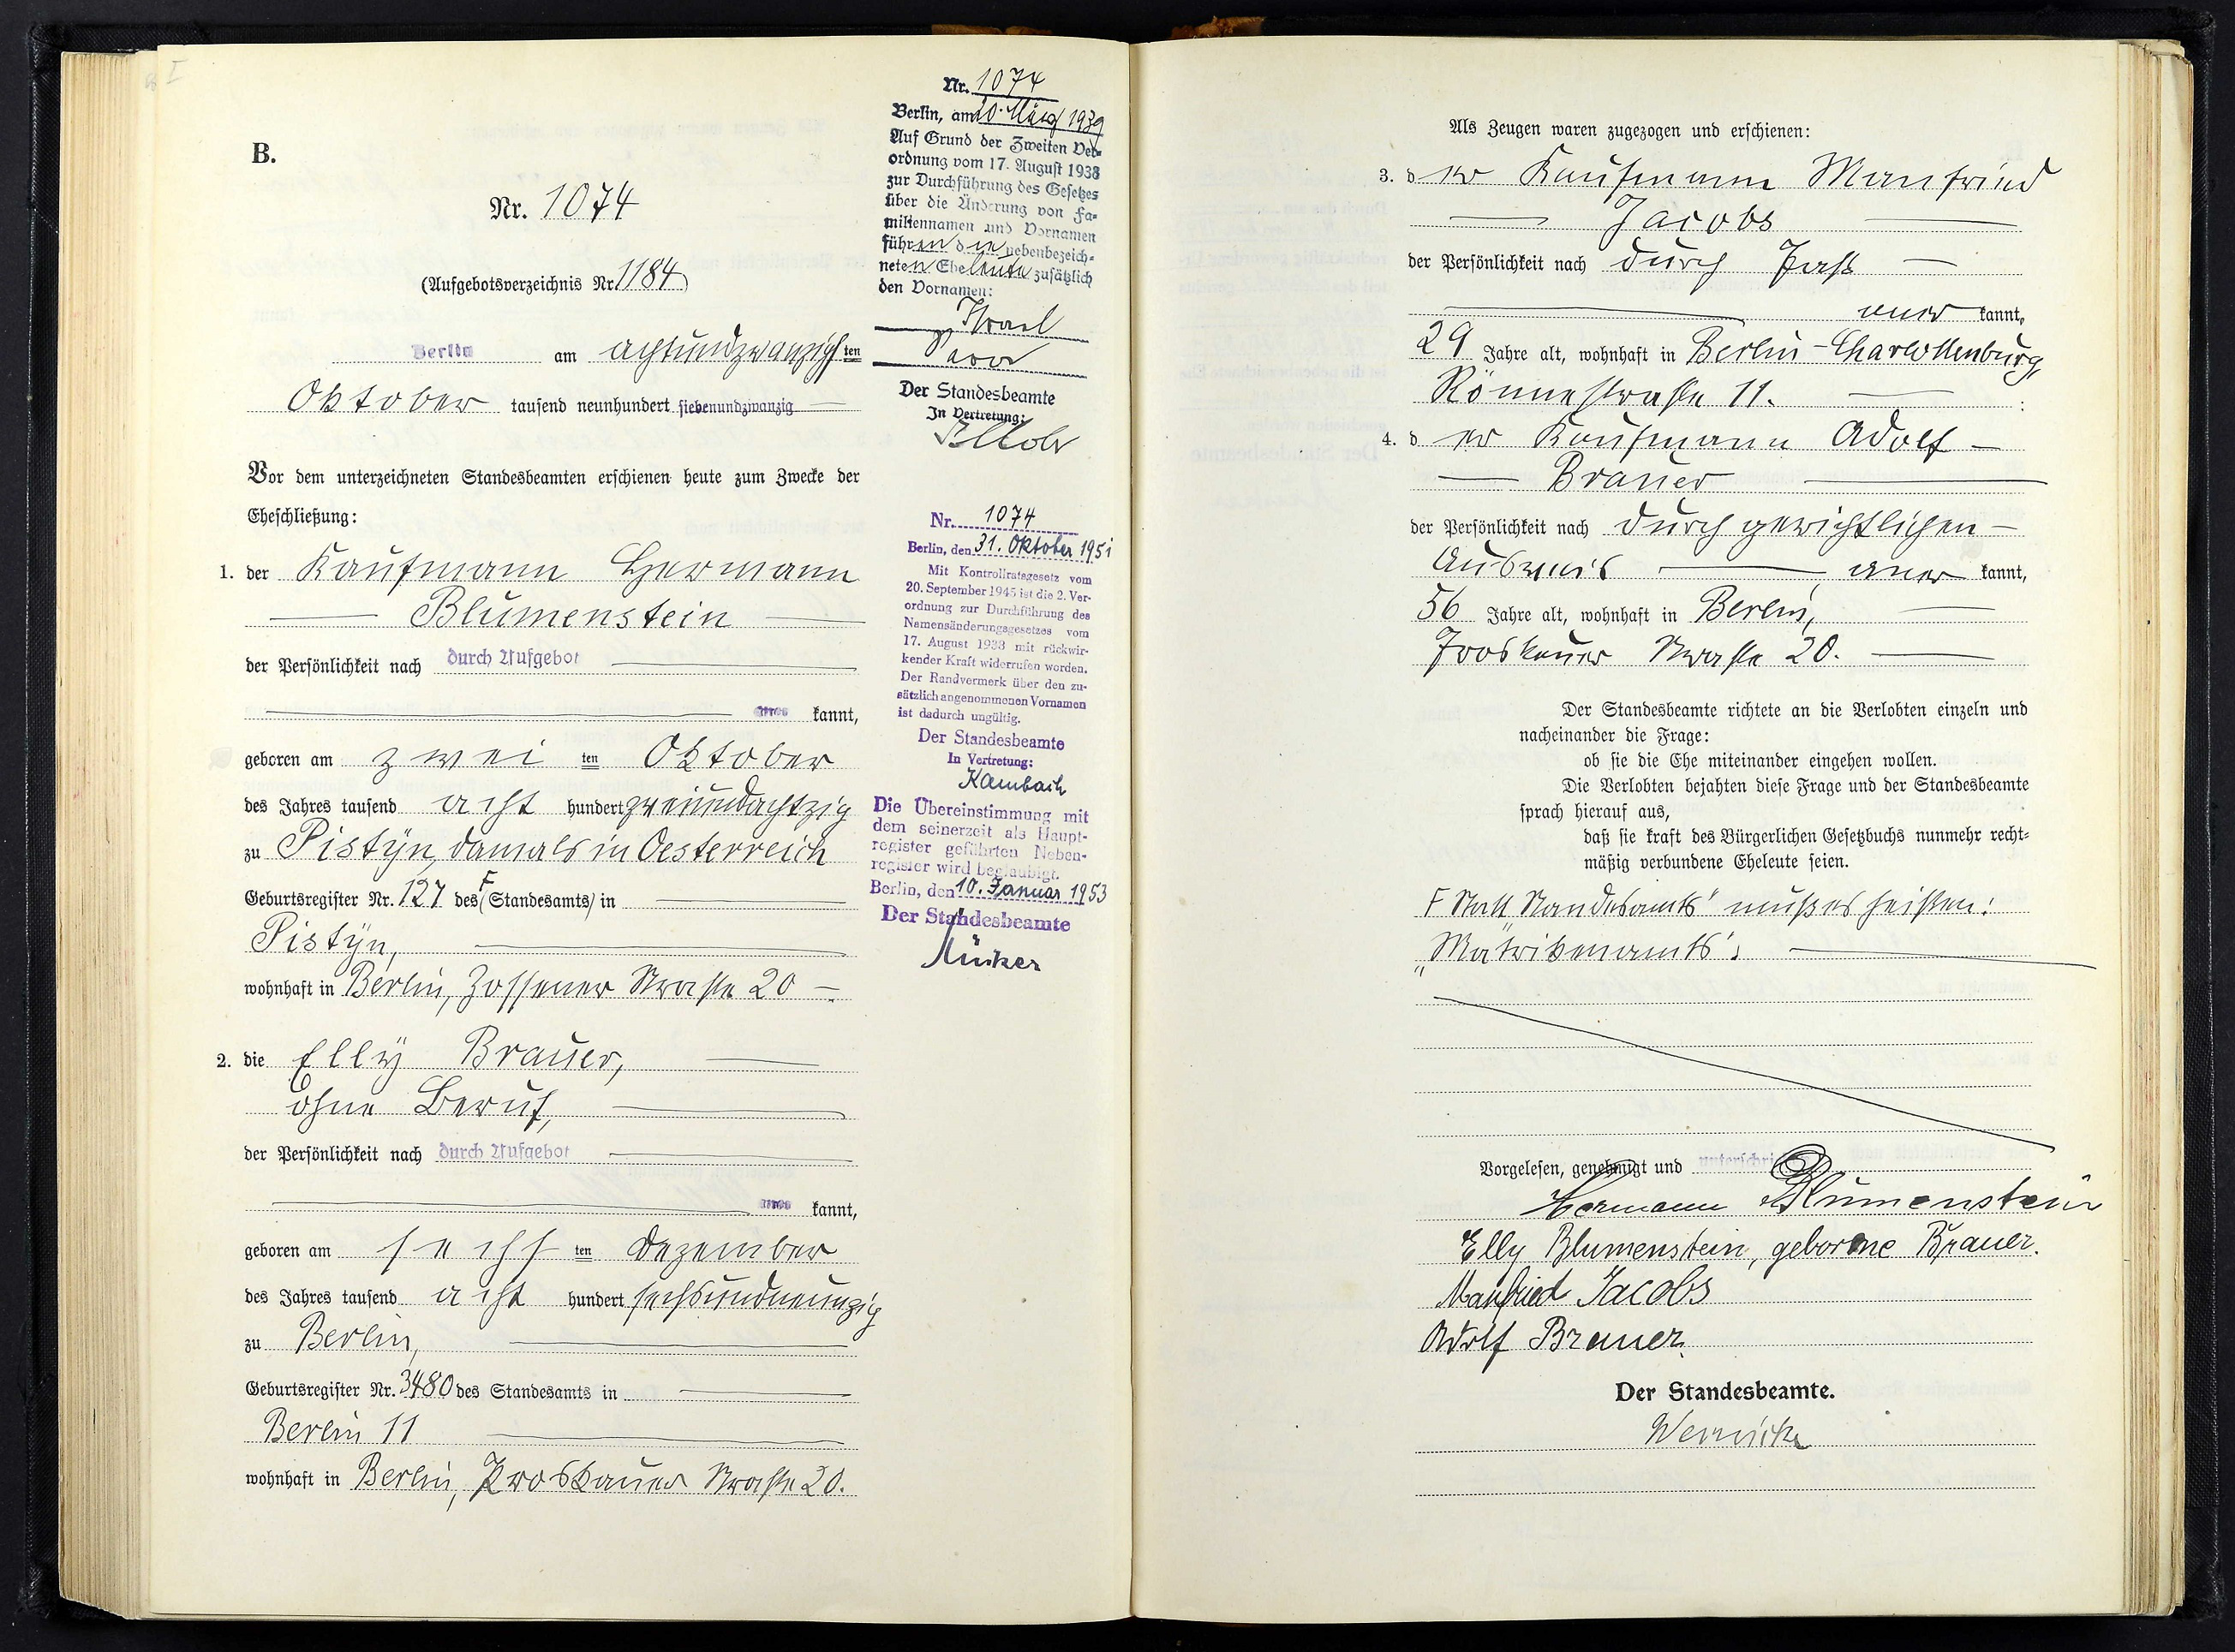 B.
Nr. 1074
(Aufgebotsverzeichnis Nr. 1184)
Berlin am achtundzwanzigsten
Oktober tausend neunhundert siebenundzwanzig
Vor dem unterzeichneten Standesbeamten erschienen heute zum Zwecke der
Eheschließung:
1. der Kaufmann Hermann
Blumenstein
der Persönlichkeit nach durch Aufgebot
kannt,
geboren am zwei ten Oktober
des Jahres tausend acht hundert zweiundachtzig
zu Pistyn, damals in Oesterreich
Geburtsregister Nr. 127 des F (Standesamts) in
Pistyn,
wohnhaft in Berlin, Zossener Strasse 20
2. die Elly Brauer,
ohne Beruf,
der Persönlichkeit nach durch Aufgebot
kannt,
geboren am sechs ten Dezember
des Jahres tausend acht hundert sechsundneunzig
zu Berlin,
Geburtsregister Nr. 3480 des Standesamts in
Berlin 11
wohnhaft in Berlin, Proskauer Strasse 20.
Nr. 1074
Berlin, am 20. März 1939
Auf Grund der Zweiten Ver-
ordnung vom 17. August 1938
zur Durchführung des Gesetzes
über die Änderung von Fa-
miliennamen und Vornamen
führen die nebenbezeich-
neten Eheleute zusätzlich
den Vornamen:
Israel
Sara
Der Standesbeamte
In Vertretung:
Nr. 1074
Berlin, den 31. Oktober 1951
Mit Kontrollratsgesetz vom
20. September 1945 ist die 2. Ver-
ordnung zur Durchführung des
Namensänderungsgesetzes vom
17. August 1938 mit rückwir-
kender Kraft widerrufen worden.
Der Randvermerk über den zu-
sätzlich angenommenen Vornamen
ist dadurch ungültig.
Der Standesbeamte
In Vertretung:
Kambach
Die Übereinstimmung mit
dem seinerzeit als Haupt-
register geführten Neben-
register wird beglaubigt.
Berlin, den 10. Januar 1953
Der Standesbeamte
Als Zeugen waren zugezogen und erschienen:
3. der Kaufmann Manfried
Jacobs
der Persönlichkeit nach durch Paß
aner kannt,
29 Jahre alt, wohnhaft in Berlin-Charlottenburg,
Rönnestraße 11.
4. der Kaufmann Adolf
Brauer
der Persönlichkeit nach durch gerichtlichen
Ausweis aner kannt,
56 Jahre alt, wohnhaft in Berlin,
Proskauer Strasse 20.
Der Standesbeamte richtete an die Verlobten einzeln und
nacheinander die Frage:
ob sie die Ehe miteinander eingehen wollen.
Die Verlobten bejahten diese Frage und der Standesbeamte
sprach hierauf aus,
daß sie kraft des Bürgerlichen Gesetzbuchs nunmehr recht-
mäßig verbundene Eheleute seien.
F Statt Standesamts" muß es heißen:
„Matrikenamts".
Vorgelesen, genehmigt und unterschrieben
Hermann Blumenstein
Elly Blumenstein, geborene Brauer.
Manfried Jacobs
Adolf Brauer.
Der Standesbeamte.
Wernicke